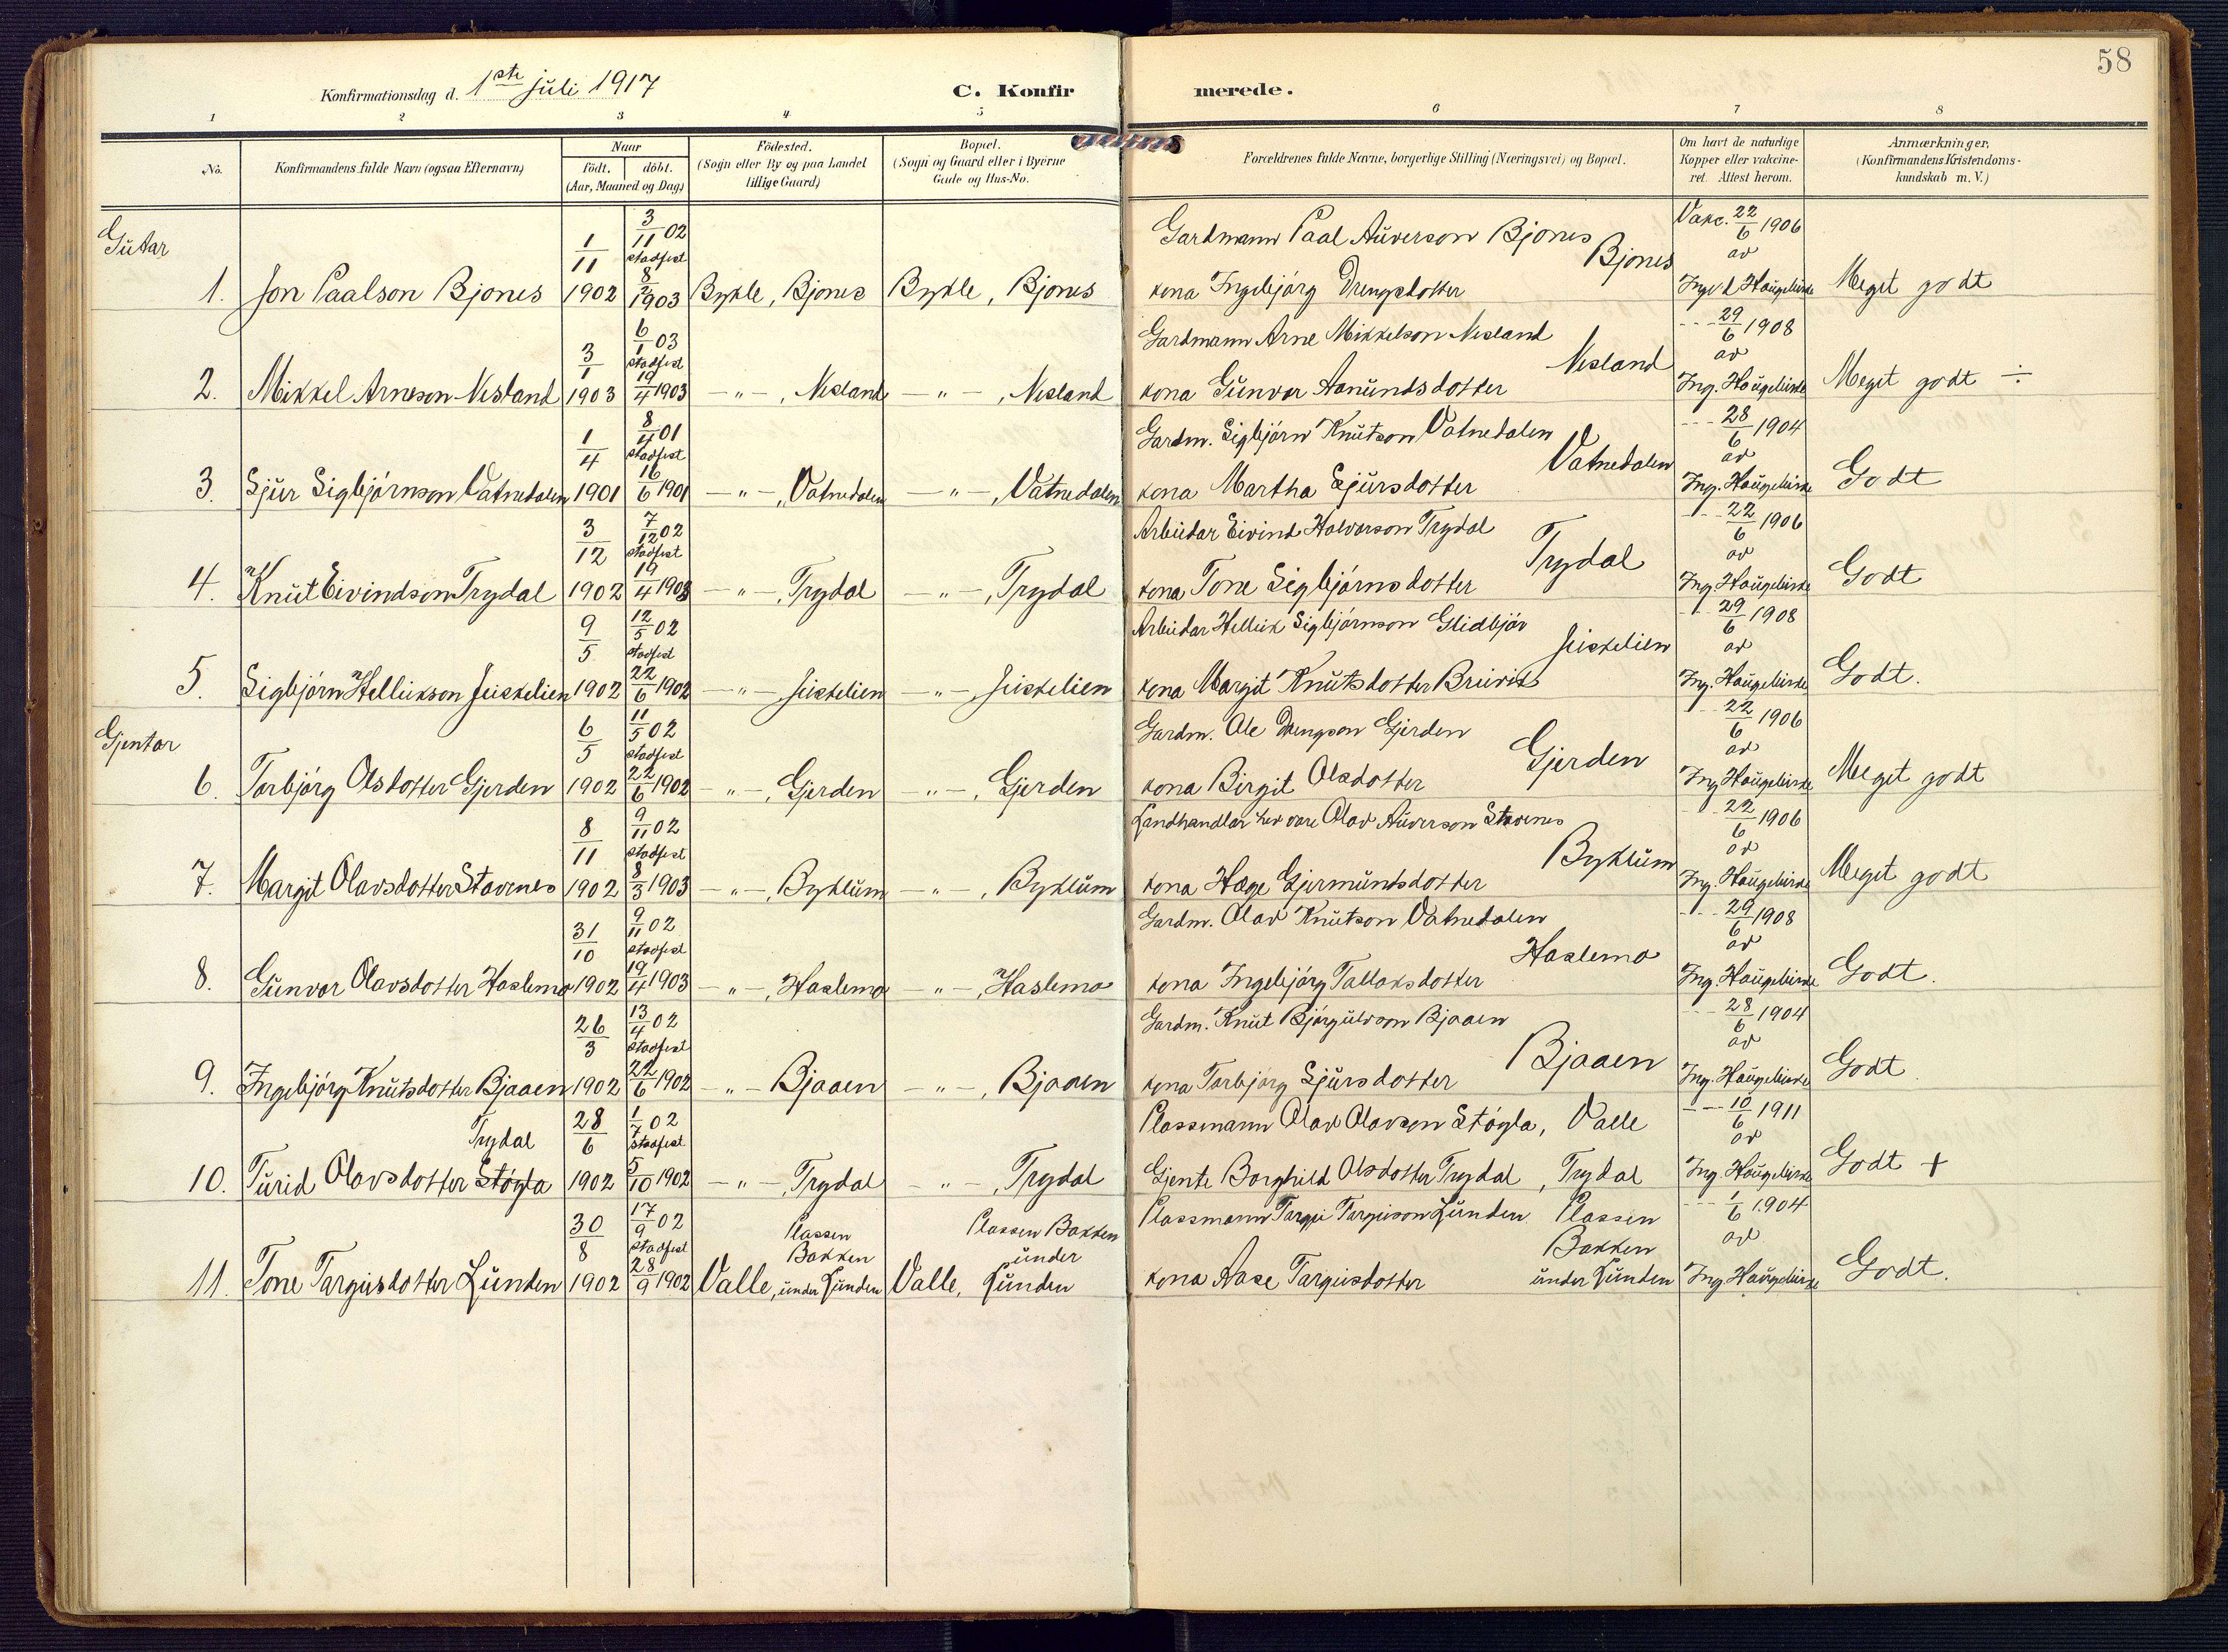 58
Konfirmationsdag d. 1ste juli 1917
C. Konfir merede.
1 2 3 4 5 6 7 8
No.
Konfirmandens fulde Navn (ogsaa Efternavn)
Naar
födt. döbt.
(Aar, Maaned og Dag)
Födested.
(Sogn eller By og paa Landet
tillige Gaard)
Bopæl.
(Sogn og Gaard eller i Byerne
Gade og Hus-No.
Forældrenes fulde Navne, borgerlige Stilling (Næringsvei) og Bopæl.
Om havt de naturlige
Kopper eller vakcine-
ret. Attest herom.
Anmærkninger.
(Konfirmandens Kristendoms-
kundskab m. V.)
Gutar
1/11 3/11 02 stadfest Gardmann Paal Auverson Bjones Bjones Vakc. 22/6 1906 av
1. Jon Paalson Bjones 1902 8/2 1903 Bykle, Bjones Bykle, Bjones kona Ingebjörg Drengsdotter Meget godt
3/1 6/1 03 stadfest Gardmann Arne Mikkelson Nesland Nesland 29/6 1908 av
2. Mikkel Arneson Nesland 1903 19/4 1903 -"-, Nesland -"-, Nesland kona Gunvor Aanundsdotter Ing. Haugebirke Meget godt ÷
1/4 8/4 01 stadfest Gardm. Sigbjörn Knutson Vatnedalen Vatnedalen 28/6 1904 av
3. Sjur Sigbjörnson Vatnedalen 1901 16/6 1901 -"-, Vatnedalen -"-, Vatnedalen kona Martha Sjursdotter Ing. Haugebirke Godt
3/12 7/12 02 stadfest Arbeidar Eivind Halvorson Trydal Trydal 22/6 1906 av
4. Knut Eivindson Trydal 1902 19/4 1903 -"-, Trydal -"-, Trydal kona Tone Sigbjörnsdotter Ing. Haugebirke Godt
9/5 12/5 02 stadfest Arbeidar Helleik Sigbjörnson 29/6 1908 av
5. Sigbjörn Helleikson 1902 22/6 1902 -"- -"- kona Margit Knutsdotter Ing. Haugebirke Godt.
Gjentor
6/5 11/5 02 stadfest Gardm. Ole Drengson Gjerden Gjerden 22/6 1906 av
6. Torbjörg Olsdotter Gjerden 1902 22/6 1902 -"-, Gjerden -"-, Gjerden kona Birgit Olsdotter Ing Haugebirke Meget godt
8/11 9/11 02 stadfest Landhandlar her vare Olav Auverson Stavenes Byklum 22/6 1906 av
7. Margit Olavsdotter Stavenes 1902 8/3 1903 -"-, Byklum -"-, Byklum kona Hæge Gjermundsdotter Ing. Haugebirke Meget godt
31/10 9/11 02 stadfest Gardm. Olav Knutson Vatnedalen Haslemo 29/6 1908 av
8. Gunvor Olavsdotter Haslemo 1902 19/4 1903 -"-, Haslemo -"-, Haslemo kona Ingebjörg Tallaksdotter Ing. Haugebirke Godt.
26/3 13/4 02 stadfest Gardm. Knut Björgulvson Bjaaen Bjaaen 28/6 1904 av
9. Ingebjörg Knutsdotter Bjaaen 1902 22/6 1902 -"- Bjaaen -"-, Bjaaen kona Torbjörg Sjursdotter Ing. Haugebirke Godt
Trydal 28/6 1/7 02 stadfest Plassmann Olav Olavson Stögla, Valle 10/6 1911 av
10. Turid Olavsdotter Stögla 1902 5/10 1902 -"-, Trydal -"-, Trydal Gjente Borghild Olsdotter Trydal, Trydal Ing. Haugebirke Godt +
30/8 17/9 02 stadfest Plassen Bakken Plassen Bakken under Plassmann Targei Targeison Lunden Plassen Bakken 1/6 1904 av
11. Tone Targeisdotter Lunden 1902 28/9 1902 Valle, under Lunden Valle, Lunden kona Aase Targeisdotter under Lunden Ing Haugebirke Godt.